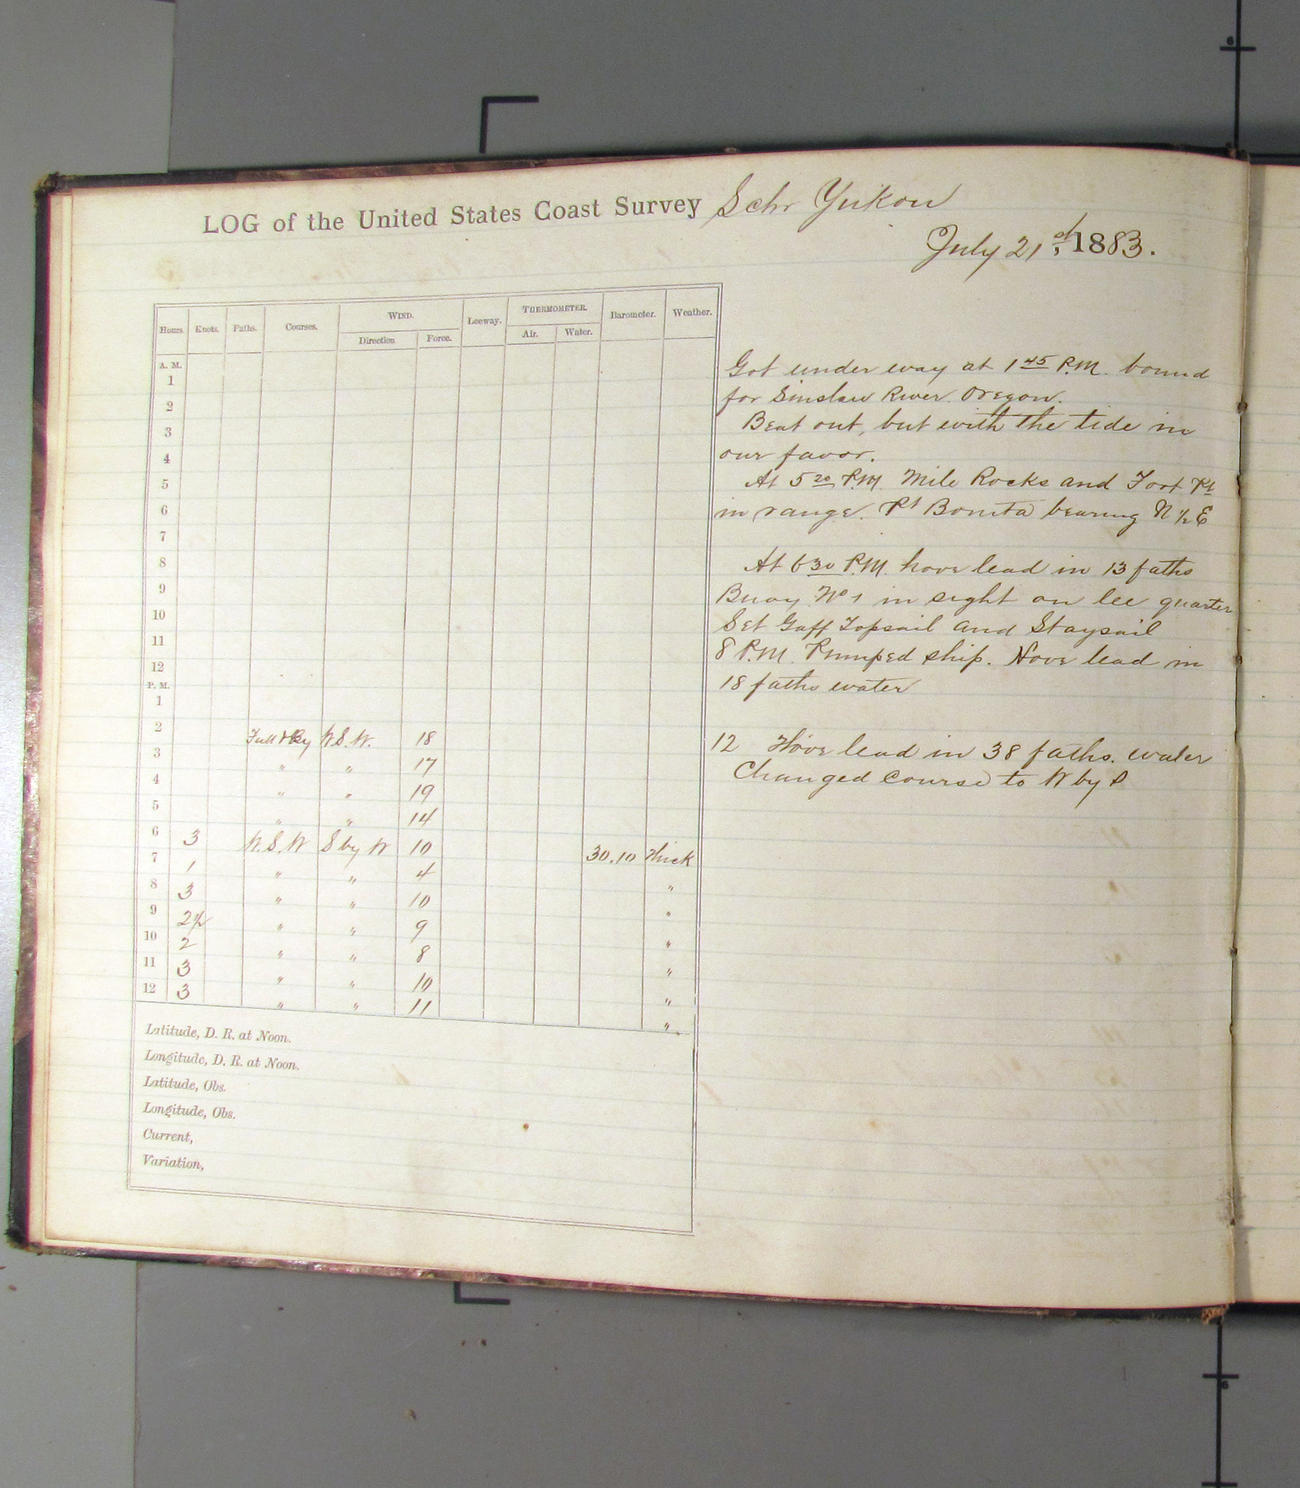 LOG of the United States Coast Survey Schr Yukon
July 21st, 1883.
Hours. Knots. Faths. Courses. WIND. Leeway. THERMOMETER. Barometer. Weather.
Direction Force. Air. Water.
A. M.
1
2
3
4
5
6
7
8
9
10
11
12
P. M.
1
2 Full & By W.S.W. 18
3 " " 17
4 " " 19
5 " " 14
6 3 W.S.W S by W 10 30.10 Thick
7 1 " " 4 "
8 3 " " 10 "
9 2½ " " 9 "
10 2 " " 8 "
11 3 " " 10 "
12 3 " " 11 "
Latitude, D. R. at Noon.
Longitude, D. R. at Noon.
Latitude, Obs.
Longitude, Obs.
Current,
Variation,
Got under way at 1 45 P.M. bound
for Siuslaw River Oregon.
Beat out, but with the tide in
our favor.
At 5 20 P.M. Mile Rocks and Fort Pt
in range. Pt Bonita bearing N ½ E
At 6 30 P.M. hove lead in 13 faths
Buoy No 1 in sight on lee quarter
Set Gaff Topsail and Staysail
8 P.M. Pumped ship. Hove lead in
18 faths water
12 Hove lead in 38 faths. water
Changed course to W by S
6
6